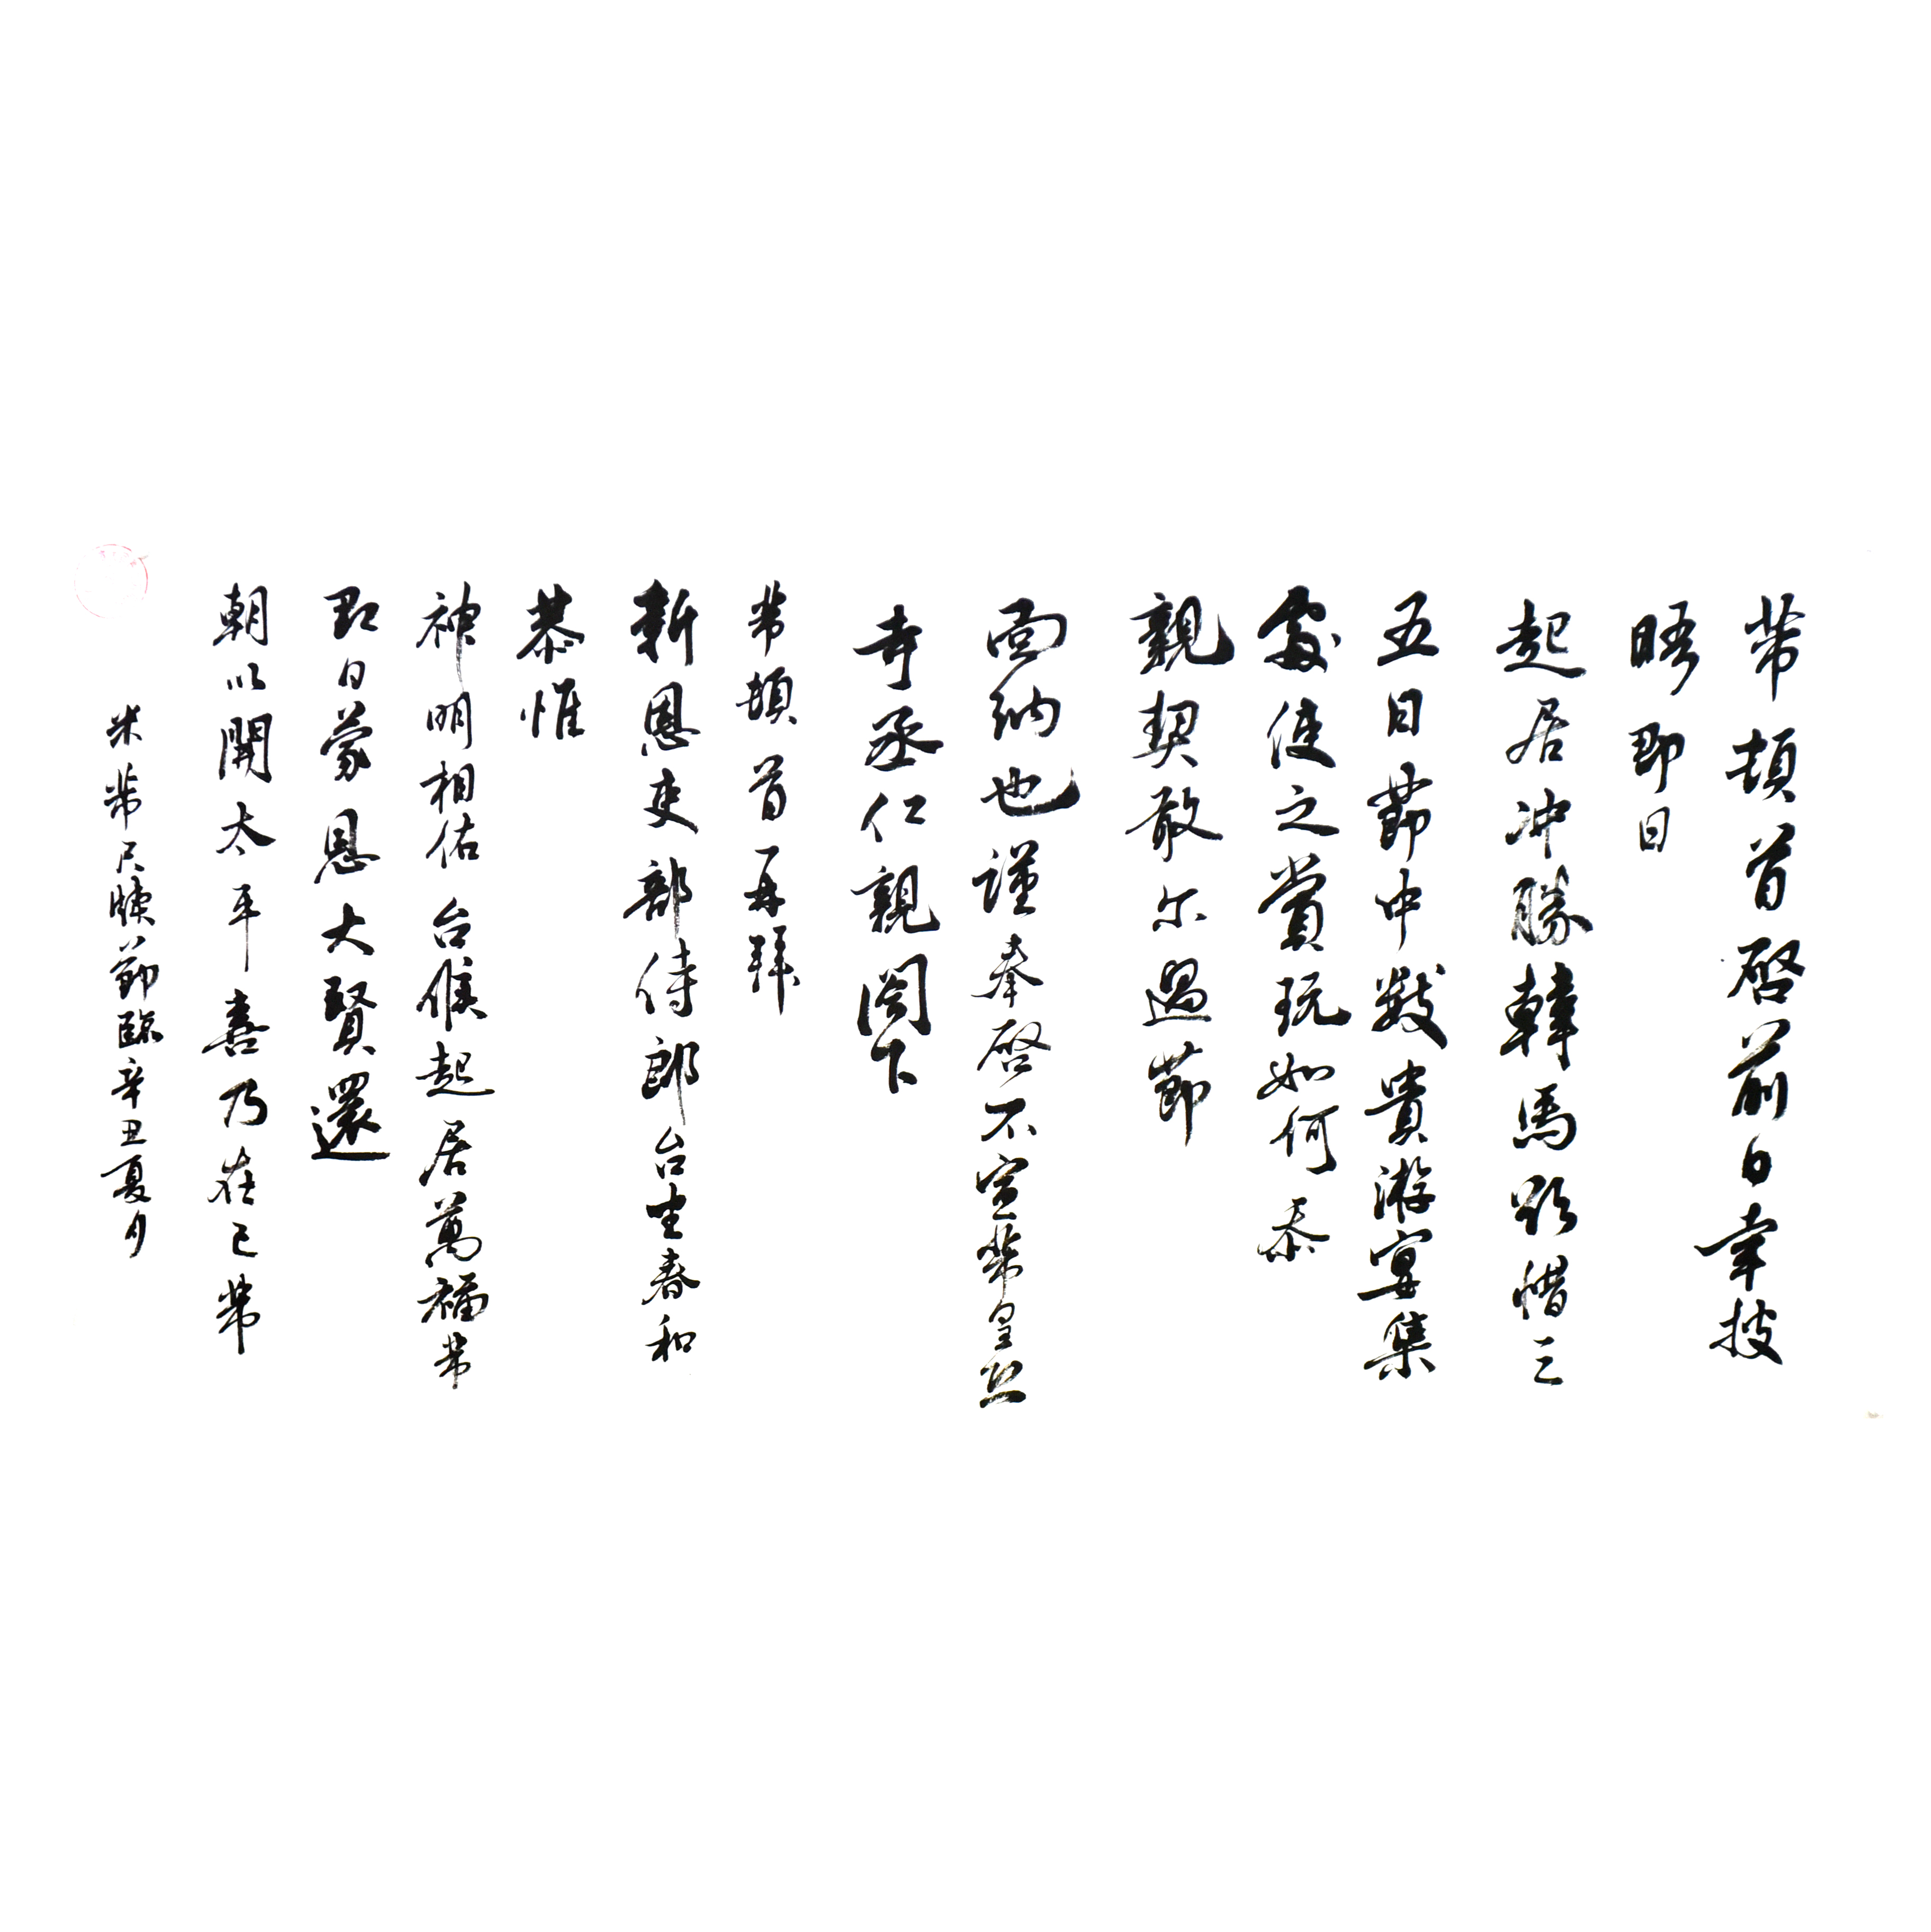 芾頓首啓前日幸披
晤即日
起居冲勝韓馬欲借三
五日節中數貴游宴集
處使之賞玩如何忝
親契敢尔過節
面納也謹奉啓不宣芾皇恐
寺丞仁親閣下
芾頓首再拜
新恩吏部侍郎台坐春和
恭惟
神明相佑台候起居萬福芾
即日蒙恩大賢還
朝以開太平喜乃在己芾
米芾尺牘節臨辛丑夏月